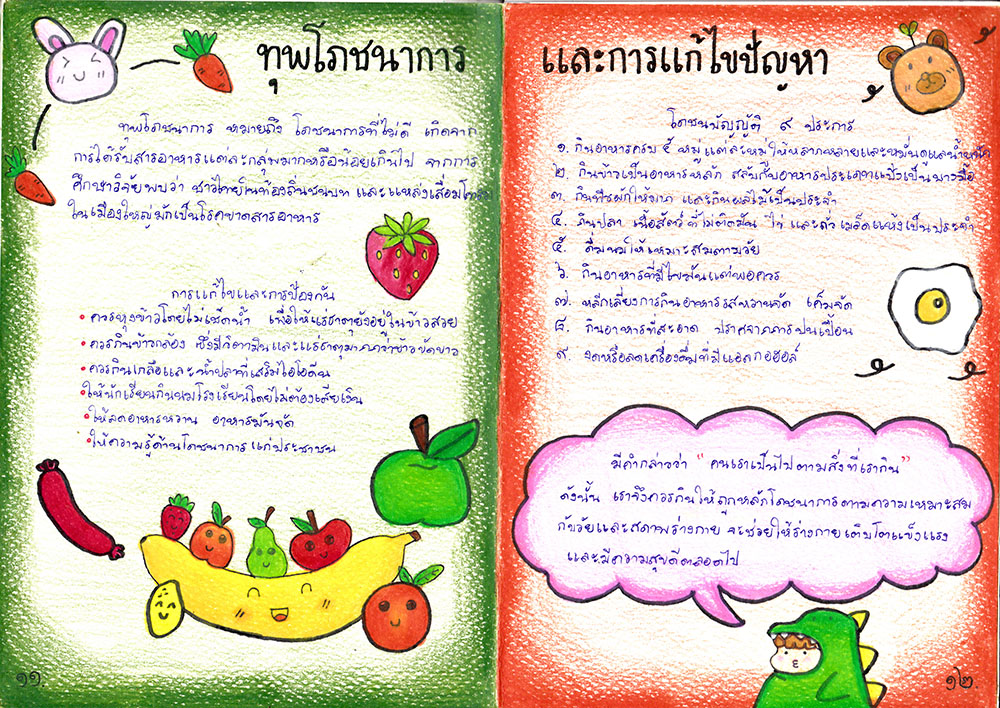 ทุพโภชนาการ
ทุพโภชนาการ หมายถึง โภชนาการที่ไม่ดี เกิดจาก
การได้รับสารอาหารแต่ละกลุ่มมากหรือน้อยเกินไป จากการ
ศึกษาวิจัยพบว่า ชาวไทยในท้องถิ่นชนบท และแหล่งเสื่อมโทรม
ในเมืองใหญ่มักเป็นโรคขาดสารอาหาร
การแก้ไขและการป้องกัน
• ควรหุงข้าวโดยไม่เช็ดน้ำ เพื่อให้แร่ธาตุยังอยู่ในข้าวสวย
• ควรกินข้าวกล้อง ซึ่งมีวิตามินและแร่ธาตุมากกว่าข้าวขัดขาว
• ควรกินเกลือและน้ำปลาที่เสริมไอโอดีน
• ให้นักเรียนกินนมโรงเรียนโดยไม่ต้องเสียเงิน
• ให้ลดอาหารหวาน อาหารมันจัด
• ให้ความรู้ด้านโภชนาการแก่ประชาชน
๑๑.
และการแก้ไขปัญหา
โภชนบัญญัติ ๙ ประการ
๑. กินอาหารครบ ๕ หมู่ แต่ละหมู่ให้หลากหลายและหมั่นดูแลน้ำหนัก
๒. กินข้าวเป็นอาหารหลัก สลับกับอาหารประเภทแป้งเป็นบางมื้อ
๓. กินพืชผักให้มาก และกินผลไม้เป็นประจำ
๔. กินปลา เนื้อสัตว์ที่ไม่ติดมัน ไข่ และถั่วเมล็ดแห้งเป็นประจำ
๕. ดื่มนมให้เหมาะสมตามวัย
๖. กินอาหารที่มีไขมันแต่พอควร
๗. หลีกเลี่ยงการกินอาหารรสหวานจัด เค็มจัด
๘. กินอาหารที่สะอาด ปราศจากการปนเปื้อน
๙. งดหรือลดเครื่องดื่มที่มีแอลกอฮอล์
มีคำกล่าวว่า "คนเราเป็นไปตามสิ่งที่เรากิน"
ดังนั้น เราจึงควรกินให้ถูกหลักโภชนาการตามความเหมาะสม
กับวัยและสภาพร่างกาย จะช่วยให้ร่างกายเติบโตแข็งแรง
และมีความสุขดีตลอดไป
๑๒.